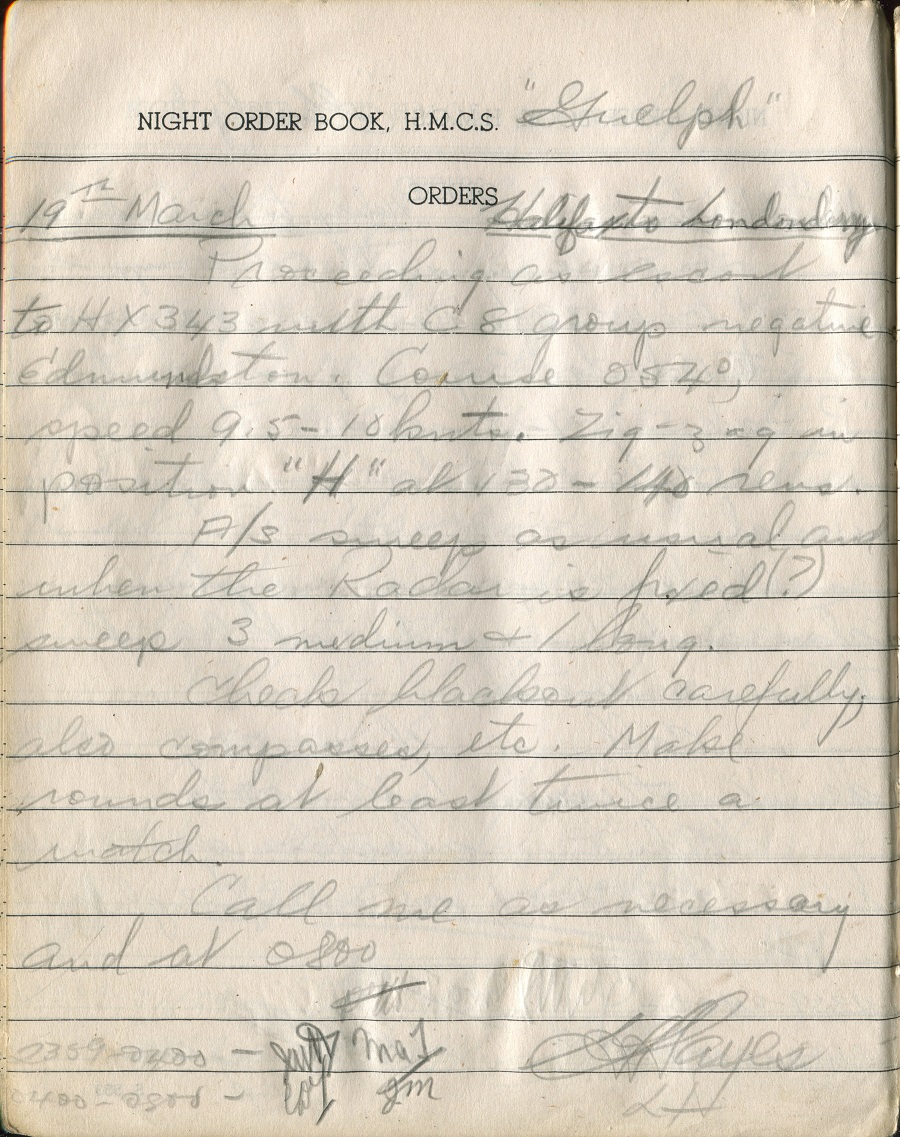 NIGHT ORDER BOOK, H.M.C.S. "Guelph"
ORDERS
19TH March Halifax to Londonderry
Proceeding as escort
to HX343 with C8 group negative
Edmundston. Course 054°,
speed 9.5-10 knts. Zig-zag in
position "H" at 130-140 revs.
A/s sweep as usual and
when the Radar is fixed (?)
sweep 3 medium + 1 long.
Check blackout carefully,
also compasses, etc. Make
rounds at least twice a
watch.
Call me as necessary
and at 0800
2359-0400 -
0400 - 0800 -
Hayes